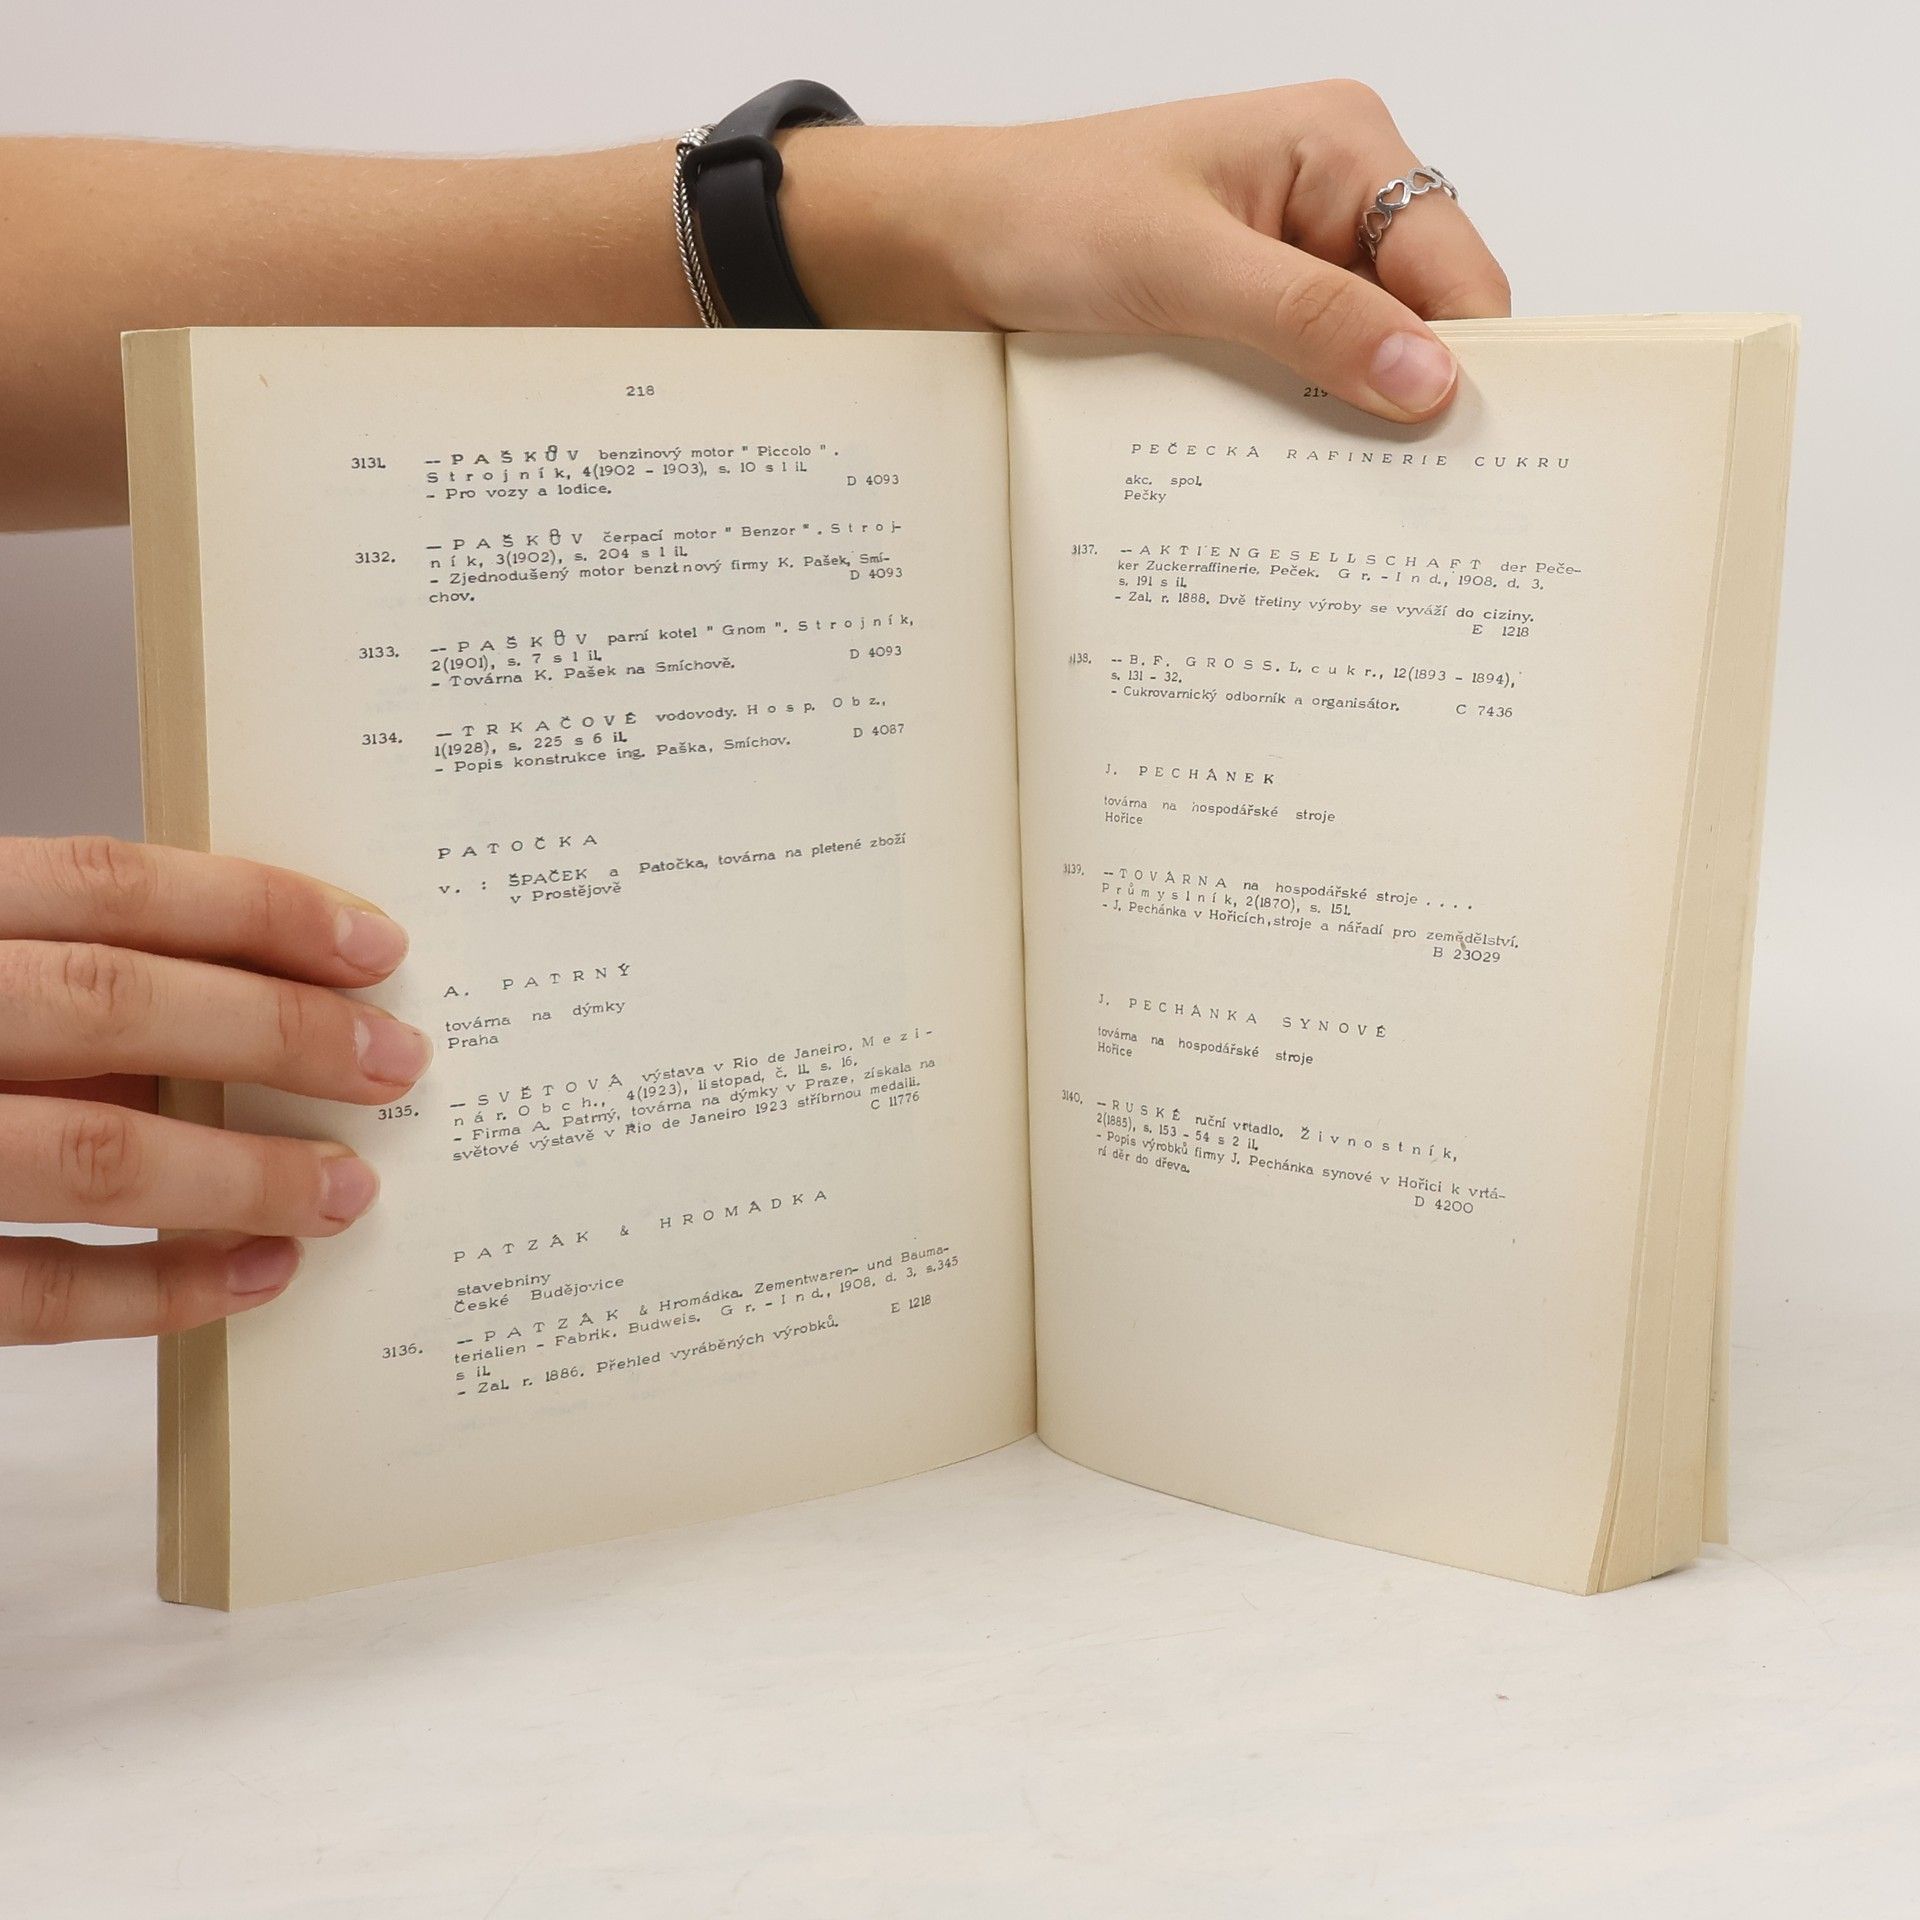 218
3131. -- P A Š K Ů V benzinový motor " Piccolo " .
S t r o j n í k, 4(1902 - 1903), s. 10 s 1 il.
- Pro vozy a lodice. D 4093
3132. -- P A Š K Ů V čerpací motor " Benzor " . S t r o j-
n í k, 3(1902), s. 204 s 1 il.
- Zjednodušený motor benzinový firmy K. Pašek, Smí-
chov. D 4093
3133. -- P A Š K Ů V parní kotel " Gnom ". S t r o j n í k,
2(1901), s. 7 s 1 il.
- Továrna K. Pašek na Smíchově. D 4093
3134. -- T R K A Č O V É vodovody. H o s p. O b z.,
1(1928), s. 225 s 6 il.
- Popis konstrukce ing. Paška, Smíchov. D 4087
P A T O Č K A
v. : ŠPAČEK a Patočka, továrna na pletené zboží
v Prostějově
A. P A T R N Ý
továrna na dýmky
Praha
3135. -- S V Ě T O V Á výstava v Rio de Janeiro. M e z i -
n á r. O b c h., 4(1923), listopad, č. 11, s. 16.
- Firma A. Patrný, továrna na dýmky v Praze, získala na
světové výstavě v Rio de Janeiro 1923 stříbrnou medaili.
C 11776
P A T Z Á K & H R O M Á D K A
stavebniny
České Budějovice
3136. -- P A T Z Á K & Hromádka. Zementwaren- und Bauma-
terialien - Fabrik. Budweis. G r. - I n d., 1908. d. 3. s.345
s il.
- Zal. r. 1886. Přehled vyráběných výrobků. E 1218
219
P E Č E C K Á R A F I N E R I E C U K R U
akc. spol.
Pečky
3137. -- A K T I E N G E S E L L S C H A F T der Peče-
ker Zuckerraffinerie. Peček. G r. - I n d., 1908. d. 3.
s. 191 s il.
- Zal. r. 1888. Dvě třetiny výroby se vyváží do ciziny.
E 1218
3138. -- B. F. G R O S S. L. c u k r., 12(1893 - 1894),
s. 131 - 32.
- Cukrovarnický odborník a organisátor. C 7436
J. P E C H Á N E K
továrna na hospodářské stroje
Hořice
3139. -- T O V Á R N A na hospodářské stroje . . . .
P r ů m y s l n í k, 2(1870), s. 151.
- J. Pechánka v Hořicích, stroje a nářadí pro zemědělství.
B 23029
J. P E C H Á N K A S Y N O V É
továrna na hospodářské stroje
Hořice
3140. -- R U S K É ruční vrtadlo. Ž i v n o s t n í k,
2(1885), s. 153 - 54 s 2 il.
- Popis výrobků firmy J. Pechánka synové v Hořici k vrtá-
ní děr do dřeva. D 4200